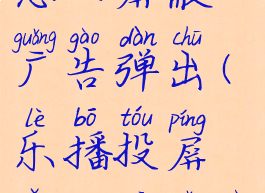 guǎng gào dàn chū
广告弹出(
lè bō tóu píng
乐播投屏